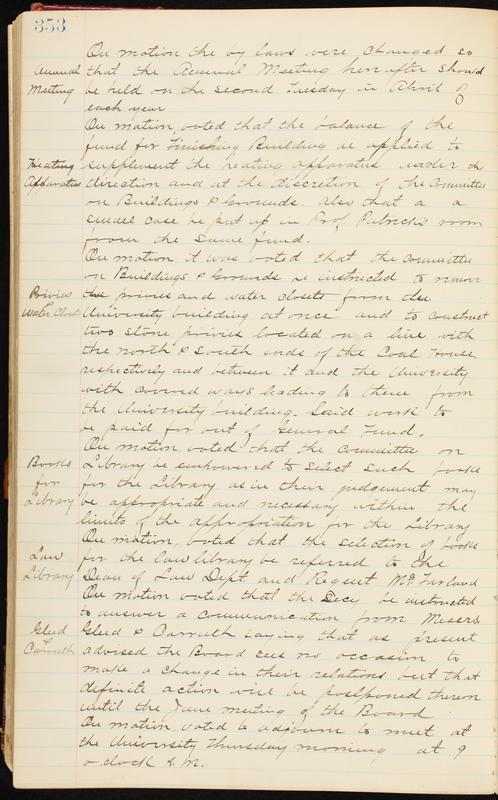 353
On motion the by laws were changed so
Annual that the Annual Meeting hereafter should
Meeting be held on the second Tuesday in April of
each year
On motion, voted that the balance of the
fund for Finishing Building be applied to
Heating supplement the heating apparatus under the
Apparatus direction and at the discretion of the Committee
on Buildings & Grounds. Also that a a
small case be put up in Prof. Patrick's room
from the same fund.
On motion it was voted that the Committee
on Buildings & Grounds be instructed to remove
Privies the privies and water closets from the
Water Closet University building at once and to construct
two stone privies located on a line with
the north & south ends of the Coal House
respectively and between it and the University
with covered ways leading to them from
the University building. Said work to
be paid for out of General Fund.
On motion, voted that the Committee on
Books Library be empowered to select such books
for for the Library as in their judgement may
Library be appropriate and necessary within the
limits of the appropriation for the Library
On motion, voted that the selection of books
Law for the law library be referred to the
Library Dean of Law Dept. and Regent McFarland
On motion voted that the Secy be instructed
to answer a communication from Messrs
Gleed Gleed & Carruth saying that as present
& Carruth advised the Board sees no occasion to
make a change in their relations but that
definite action will be postponed thereon
until the June meeting of the Board.
On motion, voted to adjourn to meet at
the University Thursday morning at 9
o clock A.M.